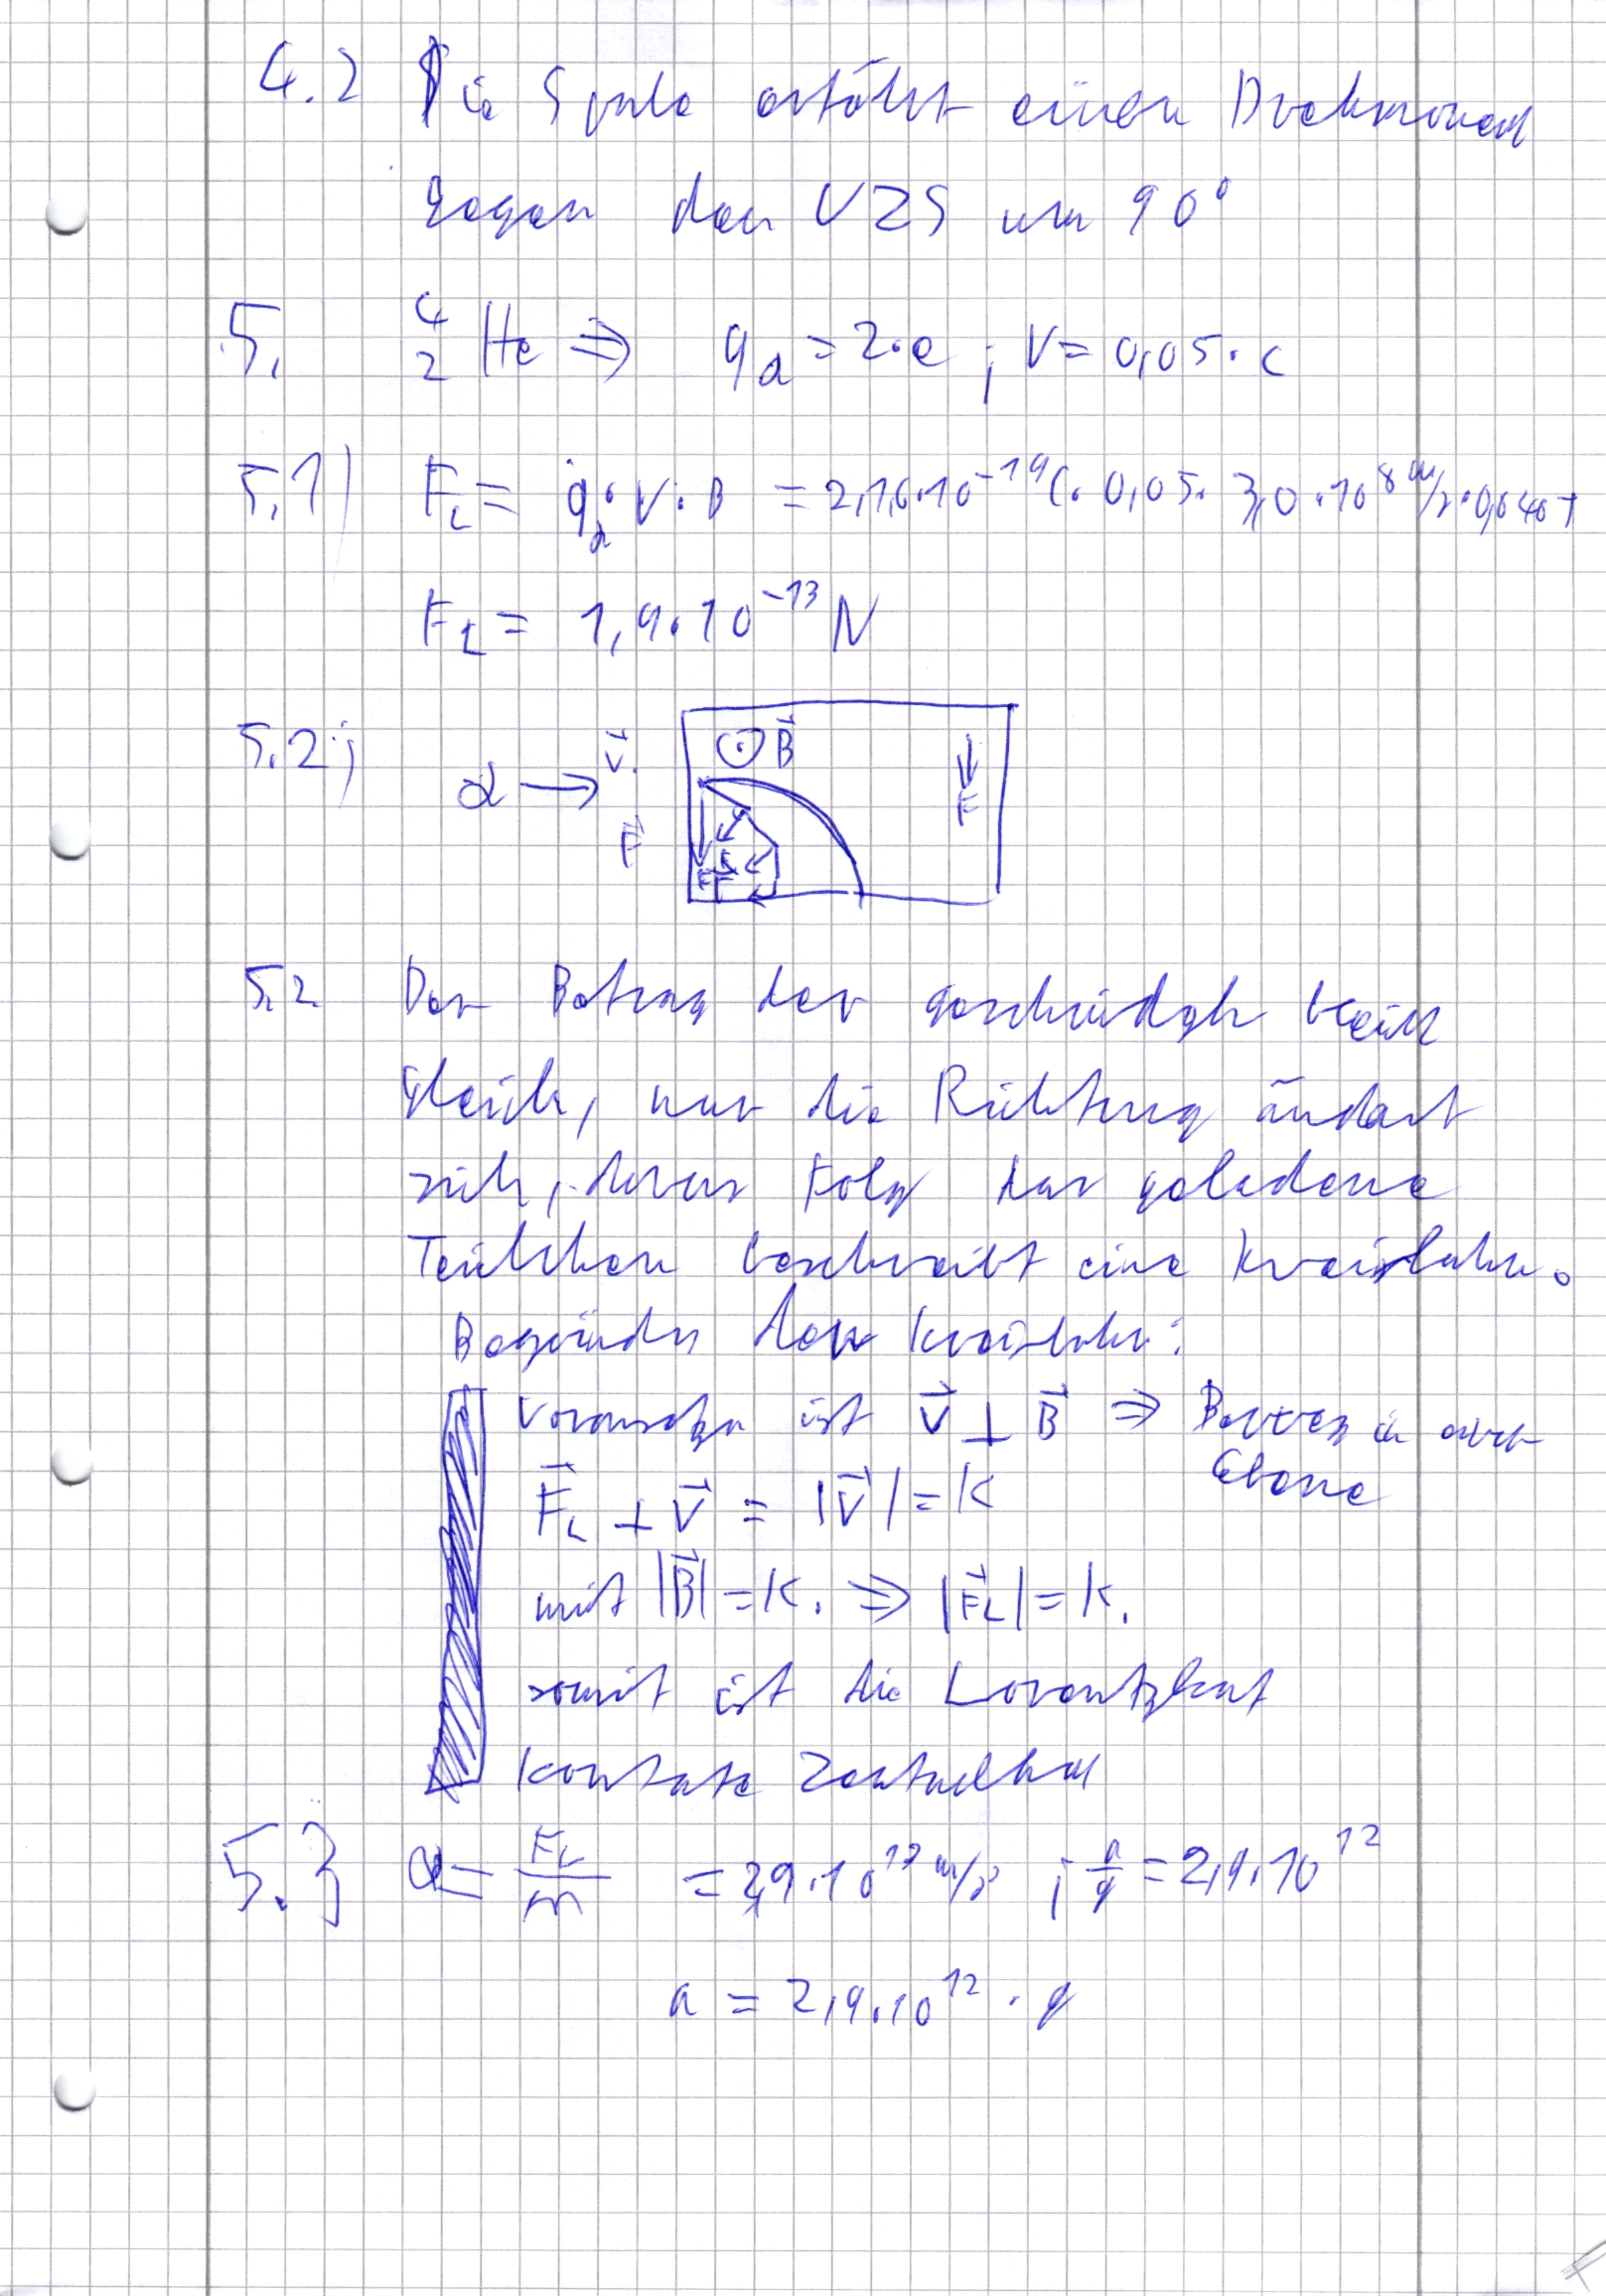 4.2 Die Spule erfährt einen Drehmoment
gegen den UZS um 90°
5. ⁴₂He ⇒ qα = 2·e ; V = 0,05·c
5.1) F_L = qα·V·B = 2·1,6·10⁻¹⁹C·0,05·3,0·10⁸ m/s·0,040T
F_L = 1,9·10⁻¹³ N
5.2) α → V⃗ ⊙ B⃗
F⃗ F F F F
5.2 Der Betrag der geschwindgk bleibt
gleich, nur die Richtung ändert
sich, daraus folg das geladene
Teilchen beschreibt eine Kreisbahn.
Begründg der Kreisbahn:
Voraussetzg ist V⃗ ⊥ B⃗ ⇒ Beweg in einer
Ebene
F⃗_L ⊥ V⃗ = |V⃗| = K
mit |B⃗| = K. ⇒ |F⃗_L| = K.
somit ist die Lorentzkraft
konstate Zentralkraft
5.3 a = F_L/m = 2,9·10¹³ m/s² ; a/g = 2,9·10¹²
a = 2,9·10¹² · g